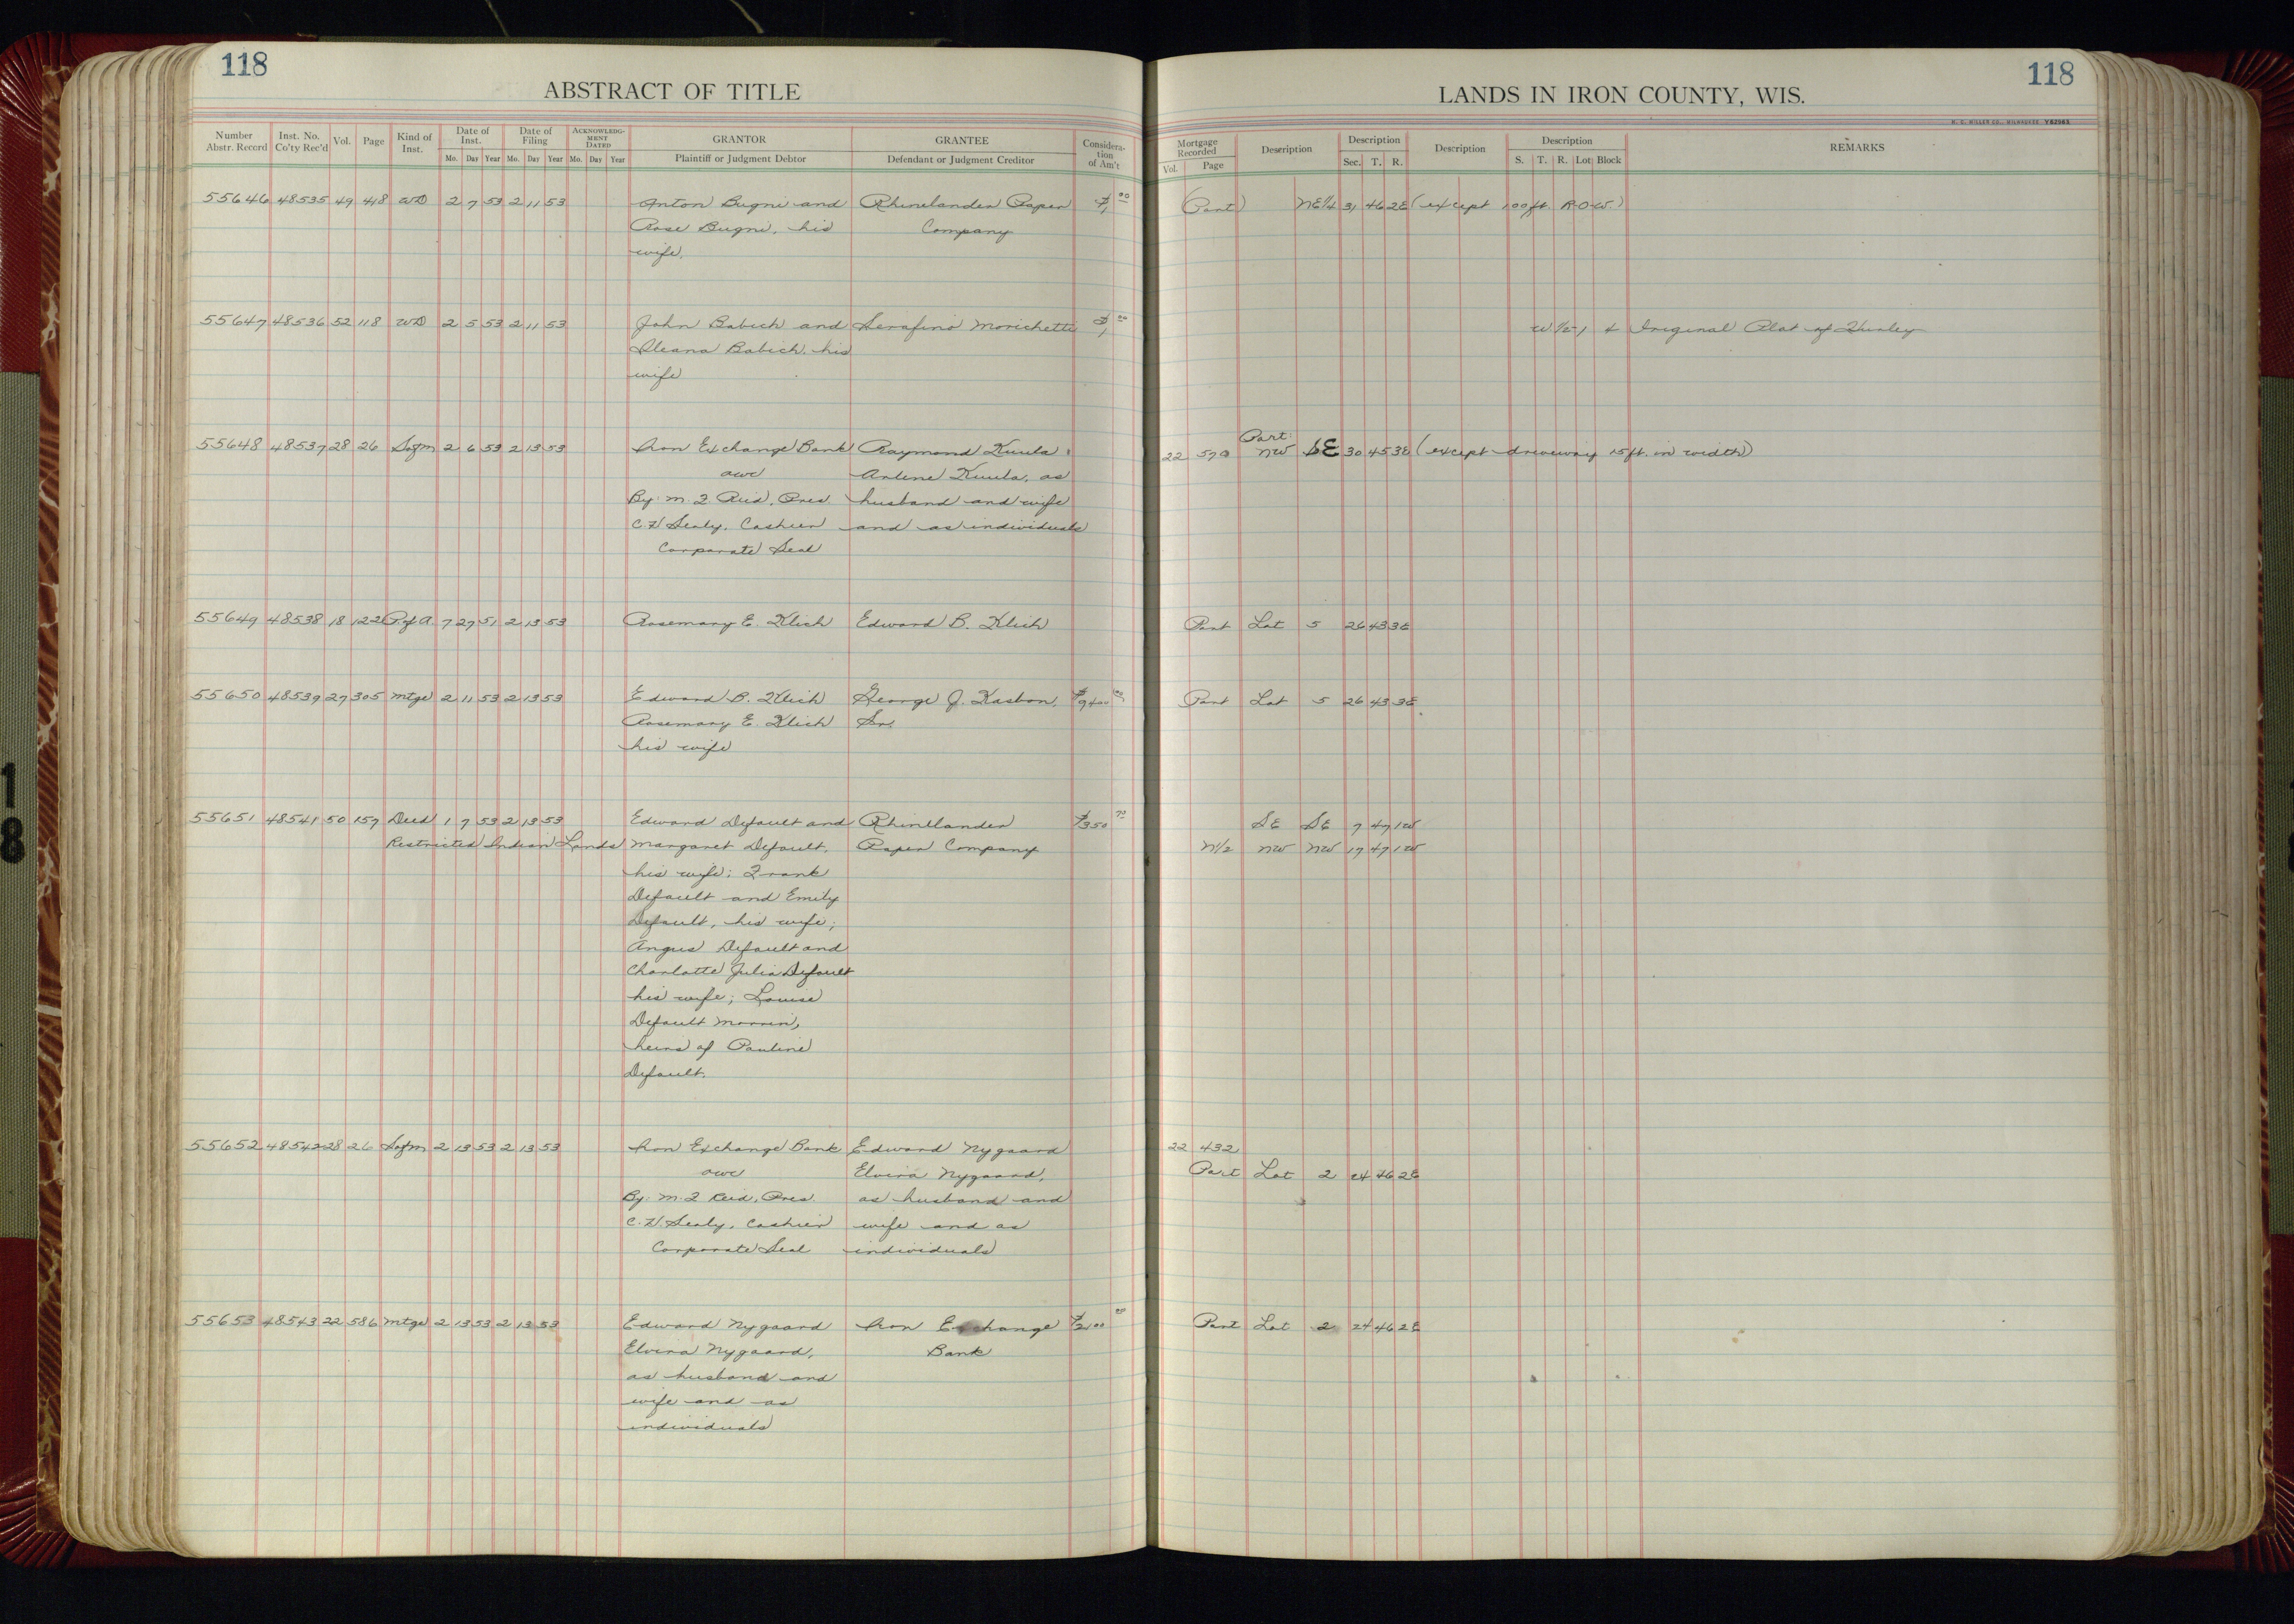 118
ABSTRACT OF TITLE
LANDS IN IRON COUNTY, WIS.
118
H. C. MILLER CO., MILWAUKEE
Number Abstr. Record | Inst. No. Co'ty Rec'd | Vol. | Page | Kind of Inst. | Date of Inst. Mo. Day Year | Date of Filing Mo. Day Year | ACKNOWLEDGMENT DATED Mo. Day Year | GRANTOR Plaintiff or Judgment Debtor | GRANTEE Defendant or Judgment Creditor | Consideration of Am't | Mortgage Recorded Vol. Page | Description | Description Sec. T. R. | Description | Description S. T. R. Lot Block | REMARKS
55646 48535 49 448 WD 2 7 53 2 11 53 Anton Bugni and Rhinelander Paper $1.00 (Part) NE1/4 31 46 2E (except 100 ft. R-O-W)
Rose Bugni, his Company
wife.
55647 48536 52 118 WD 2 5 53 2 11 53 John Babich and Serafino Morichetti $1.00 W 1/2-1 4 Original Plat of Hurley
Ileana Babich, his
wife
Part:
55648 48537 28 26 Sofm 2 6 53 2 13 53 Iron Exchange Bank Raymond Kuula 22 570 NW SE 30 45 3E (except driveway 15 ft. in width)
awc Arlene Kuula, as
By: M. J. Reid, Pres. husband and wife
C. H. Sealy, Cashier and as individuals
Corporate Seal
55649 48538 18 122 P of A 7 27 51 2 13 53 Rosemary E. Klich Edward B. Klich Part Lot 5 26 43 3E
55650 48539 27 305 Mtge 2 11 53 2 13 53 Edward B. Klich George J. Kasbon, $9400.00 Part Lot 5 26 43 3E
Rosemary E. Klich Sr.
his wife
55651 48541 50 157 Deed 1 7 53 2 13 53 Edward Default and Rhinelander $350 SE SE 7 47 1W
Restricted Indian Lands Margaret Default, Paper Company N1/2 NW NW 17 47 1W
his wife; Frank
Default and Emily
Default, his wife;
Angus Default and
Charlotte Julia Default
his wife; Louise
Default Morrin,
heirs of Pauline
Default.
55652 48542 28 26 Sofm 2 13 53 2 13 53 Iron Exchange Bank Edward Nygaard 22 432
awc Elvira Nygaard, Part Lot 2 24 46 2E
By: M. J. Reid, Pres. as husband and
C. H. Sealy, Cashier wife and as
Corporate Seal individuals
55653 48543 22 586 Mtge 2 13 53 2 13 53 Edward Nygaard Iron Exchange $2100 Part Lot 2 24 46 2E
Elvira Nygaard, Bank
as husband and
wife and as
individuals
18